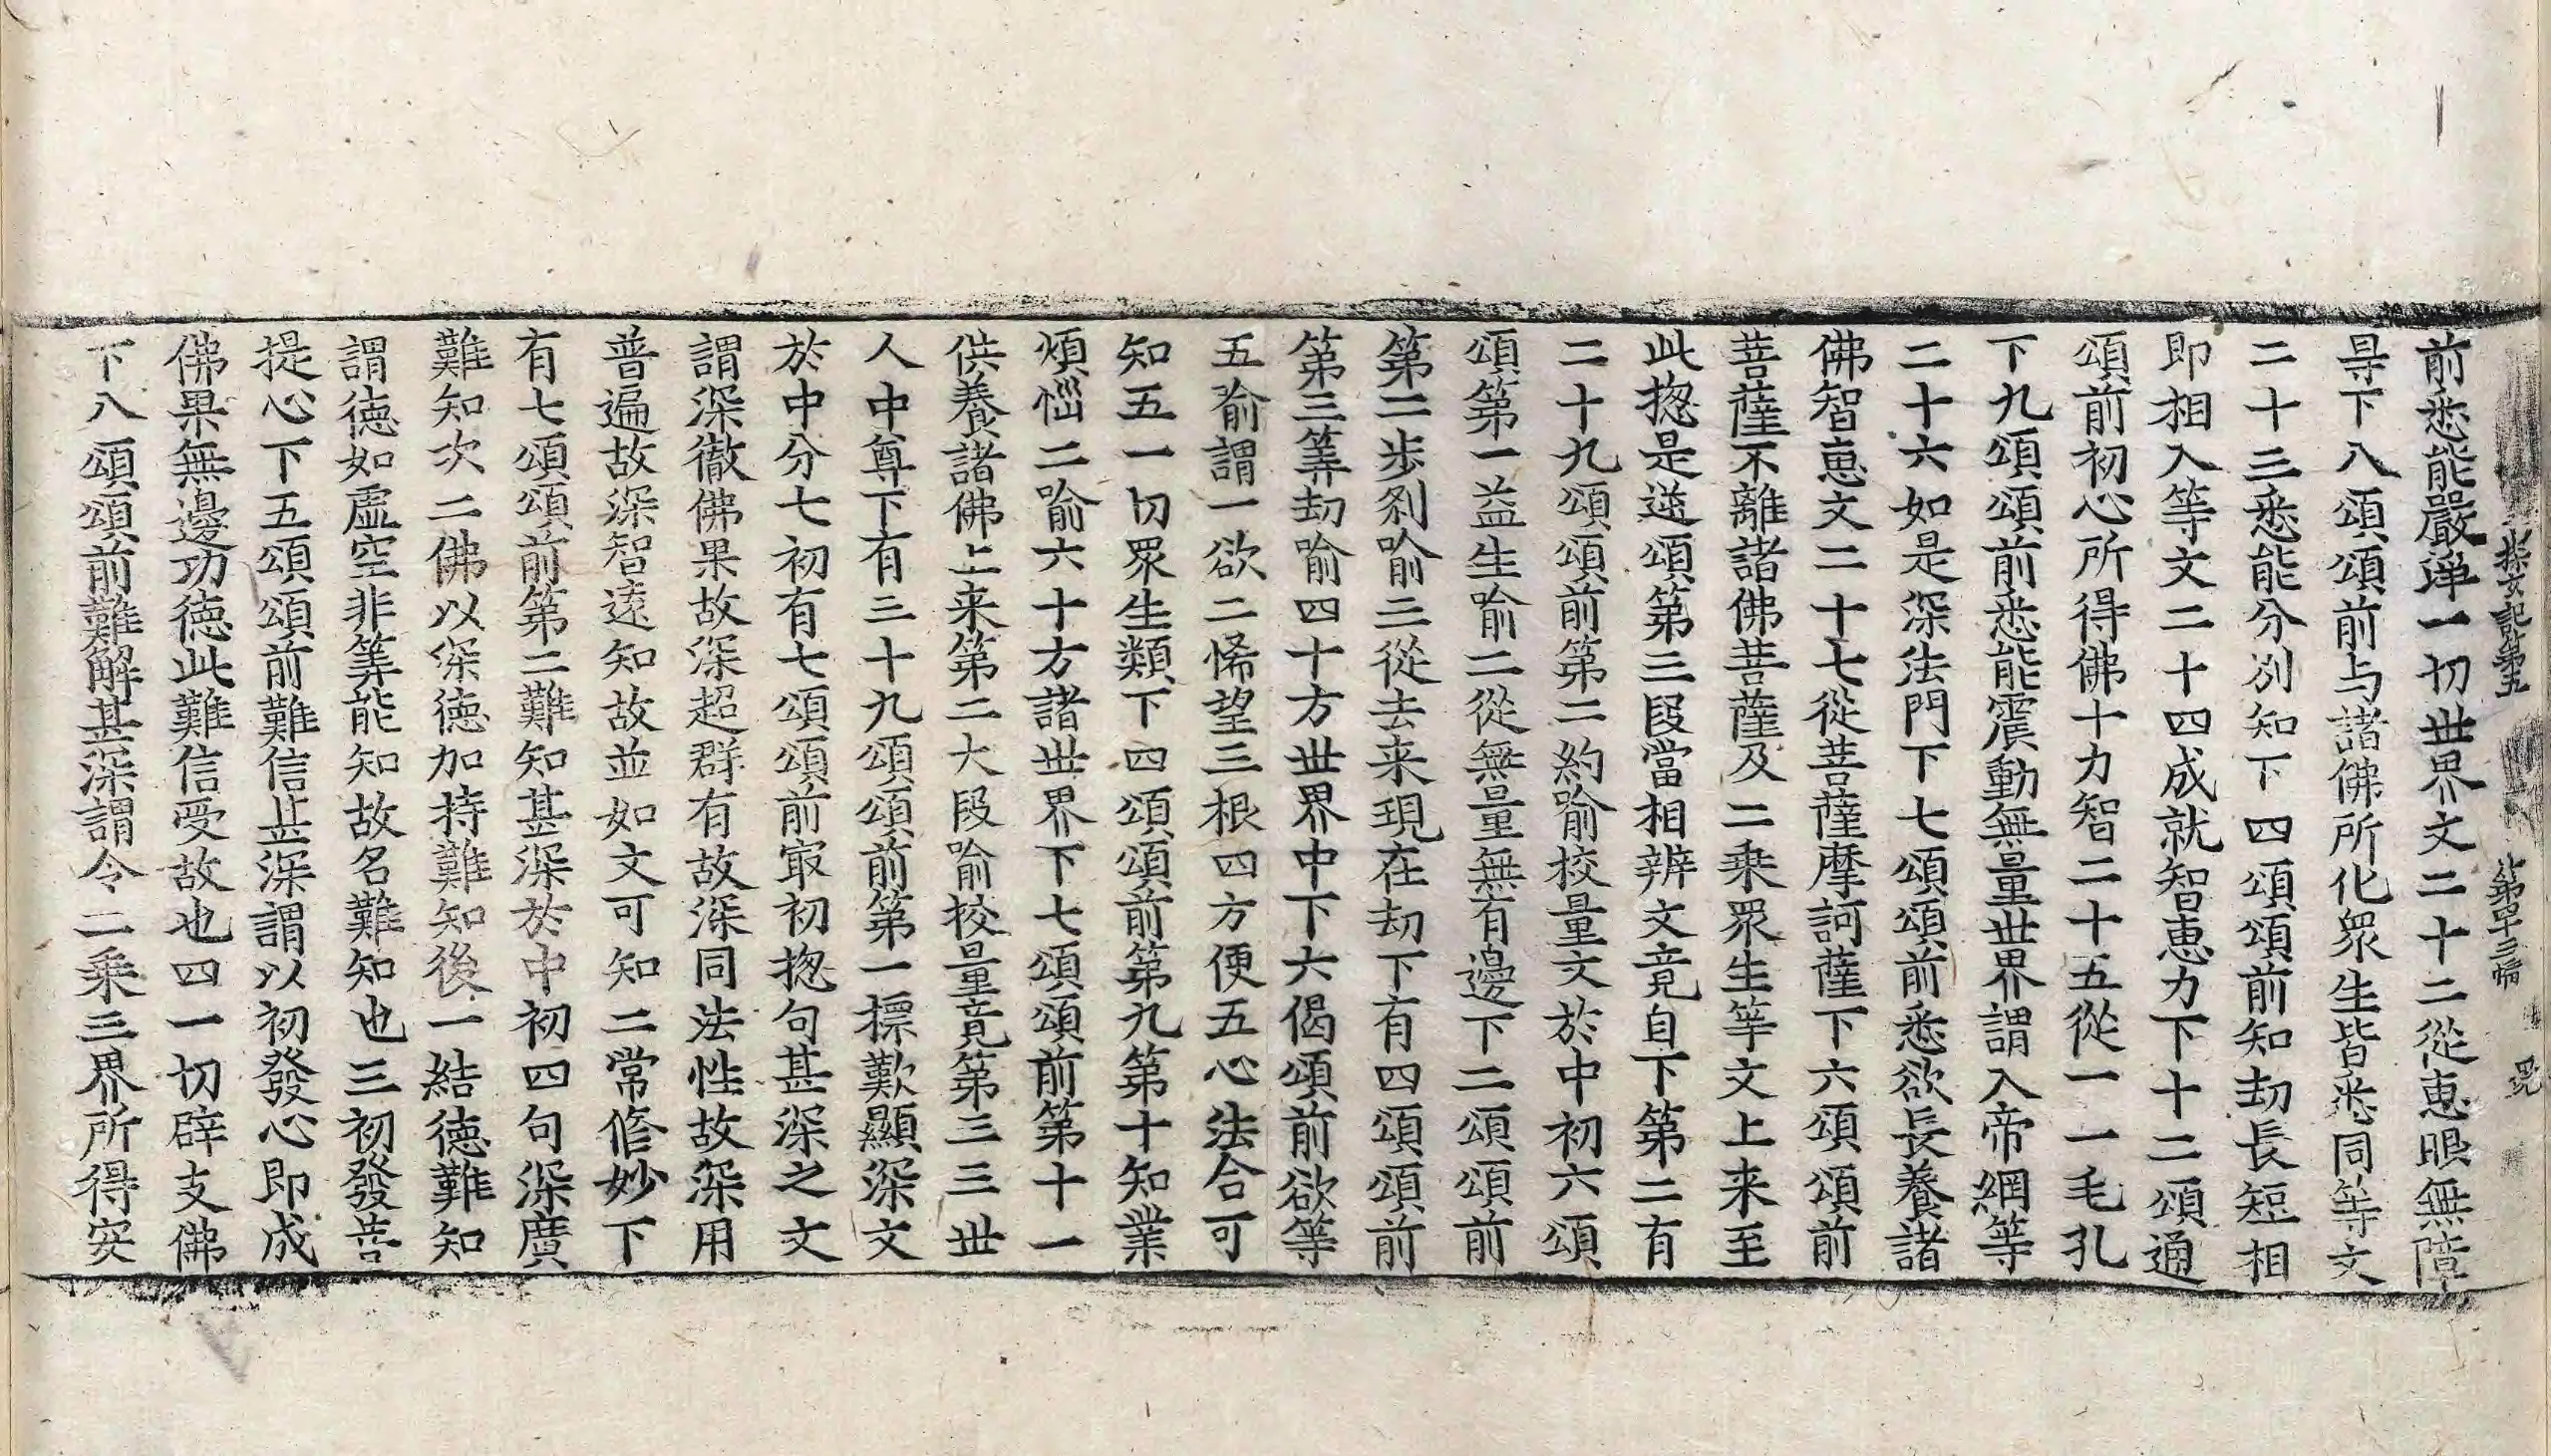 探玄記第五　第四十三幅
前悉能嚴淨一切世界文二十二從恵眼無障
㝵下八頌頌前与諸佛所化衆生皆悉同等文
二十三悉能分別知下四頌頌前知劫長短相
即相入等文二十四成就智恵力下十二頌通
頌前初心所得佛十力智二十五從一一毛孔
下九頌頌前悉能震動無量世界謂入帝網等
二十六如是深法門下七頌頌前悉欲長養諸
佛智恵文二十七從菩薩摩訶薩下六頌頌前
菩薩不離諸佛菩薩及二乗眾生等文上来至
此揔是送頌第三段當相辨文竟自下第二有
二十九頌頌前第二約喻挍量文於中初六頌
頌第一益生喻二從無量無有邊下二頌頌前
第二步刹喻三從去来現在劫下有四頌頌前
第三筭劫喻四十方世界中下六偈頌前欲等
五喻謂一欲二悕望三根四方便五心法合可
知五一切眾生類下四頌頌前第九第十知業
煩惱二喻六十方諸世界下七頌頌前第十一
供養諸佛上来第二大段喻挍量竟第三三世
人中尊下有三十九頌頌前第一標歎顯深文
於中分七初有七頌頌前㝡初揔句甚深之文
謂深徹佛果故深超群有故深同法性故深用
普遍故深智遠知故並如文可知二常修妙下
有七頌頌前第二難知甚深於中初四句深廣
難知次二佛以深徳加持難知後一結徳難知
謂徳如虛空非筭能知故名難知也三初發菩
提心下五頌頌前難信甚深謂以初發心即成
佛果無邊功徳此難信受故也四一切辟支佛
下八頌頌前難解甚深謂令二乗三界所得突